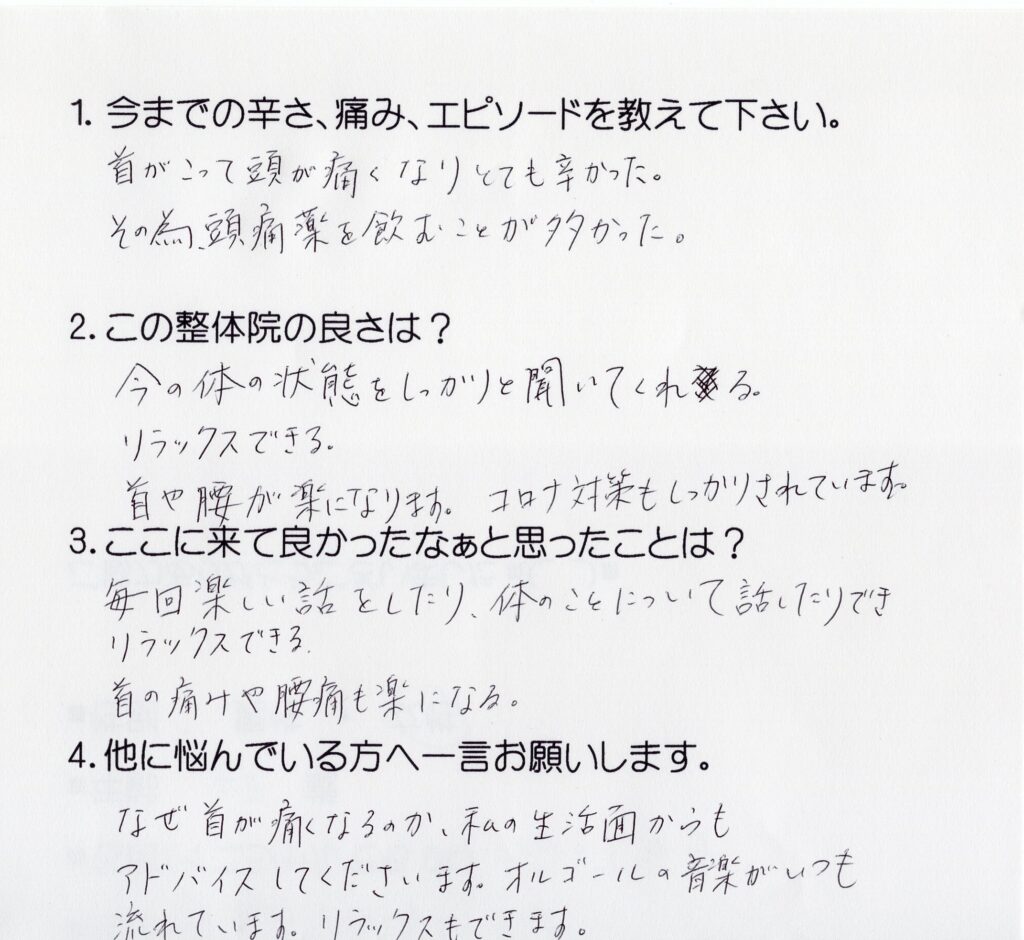 1. 今までの辛さ、痛み、エピソードを教えて下さい。
首がこって頭が痛くなりとても辛かった。
その為、頭痛薬を飲むことが多かった。
2. この整体院の良さは？
今の体の状態をしっかりと聞いてくれる。
リラックスできる。
首や腰が楽になります。 コロナ対策もしっかりされています。
3. ここに来て良かったなぁと思ったことは？
毎回楽しい話をしたり、体のことについて話したりでき
リラックスできる。
首の痛みや腰痛も楽になる。
4. 他に悩んでいる方へ一言お願いします。
なぜ首が痛くなるのか、私の生活面からも
アドバイスしてくださいます。オルゴールの音楽がいつも
流れています。リラックスもできます。